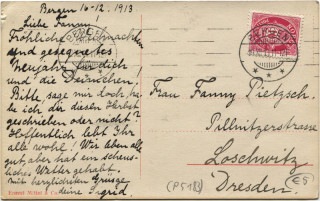 Bergen 16-12. 1913
Liebe Fanny
Fröhliche Weihnachten
und gesegnetes
Neujahr wünsche ich dir
und die Deinichen.
Bitte, sage mir doch, ha-
be ich dir diesen Herbst
geschrieben oder nicht?
Hoffentlich lebt Ihr
alle wohl! Wir leben alle
gut, aber hat ein scheus-
liches Wetter gehabt.
Mit herzlichsten Grüsse
deine Sigrid
BERGEN
Frau Fanny Pietzsch
Pillnitzerstrasse
Loschwitz
Dresden.